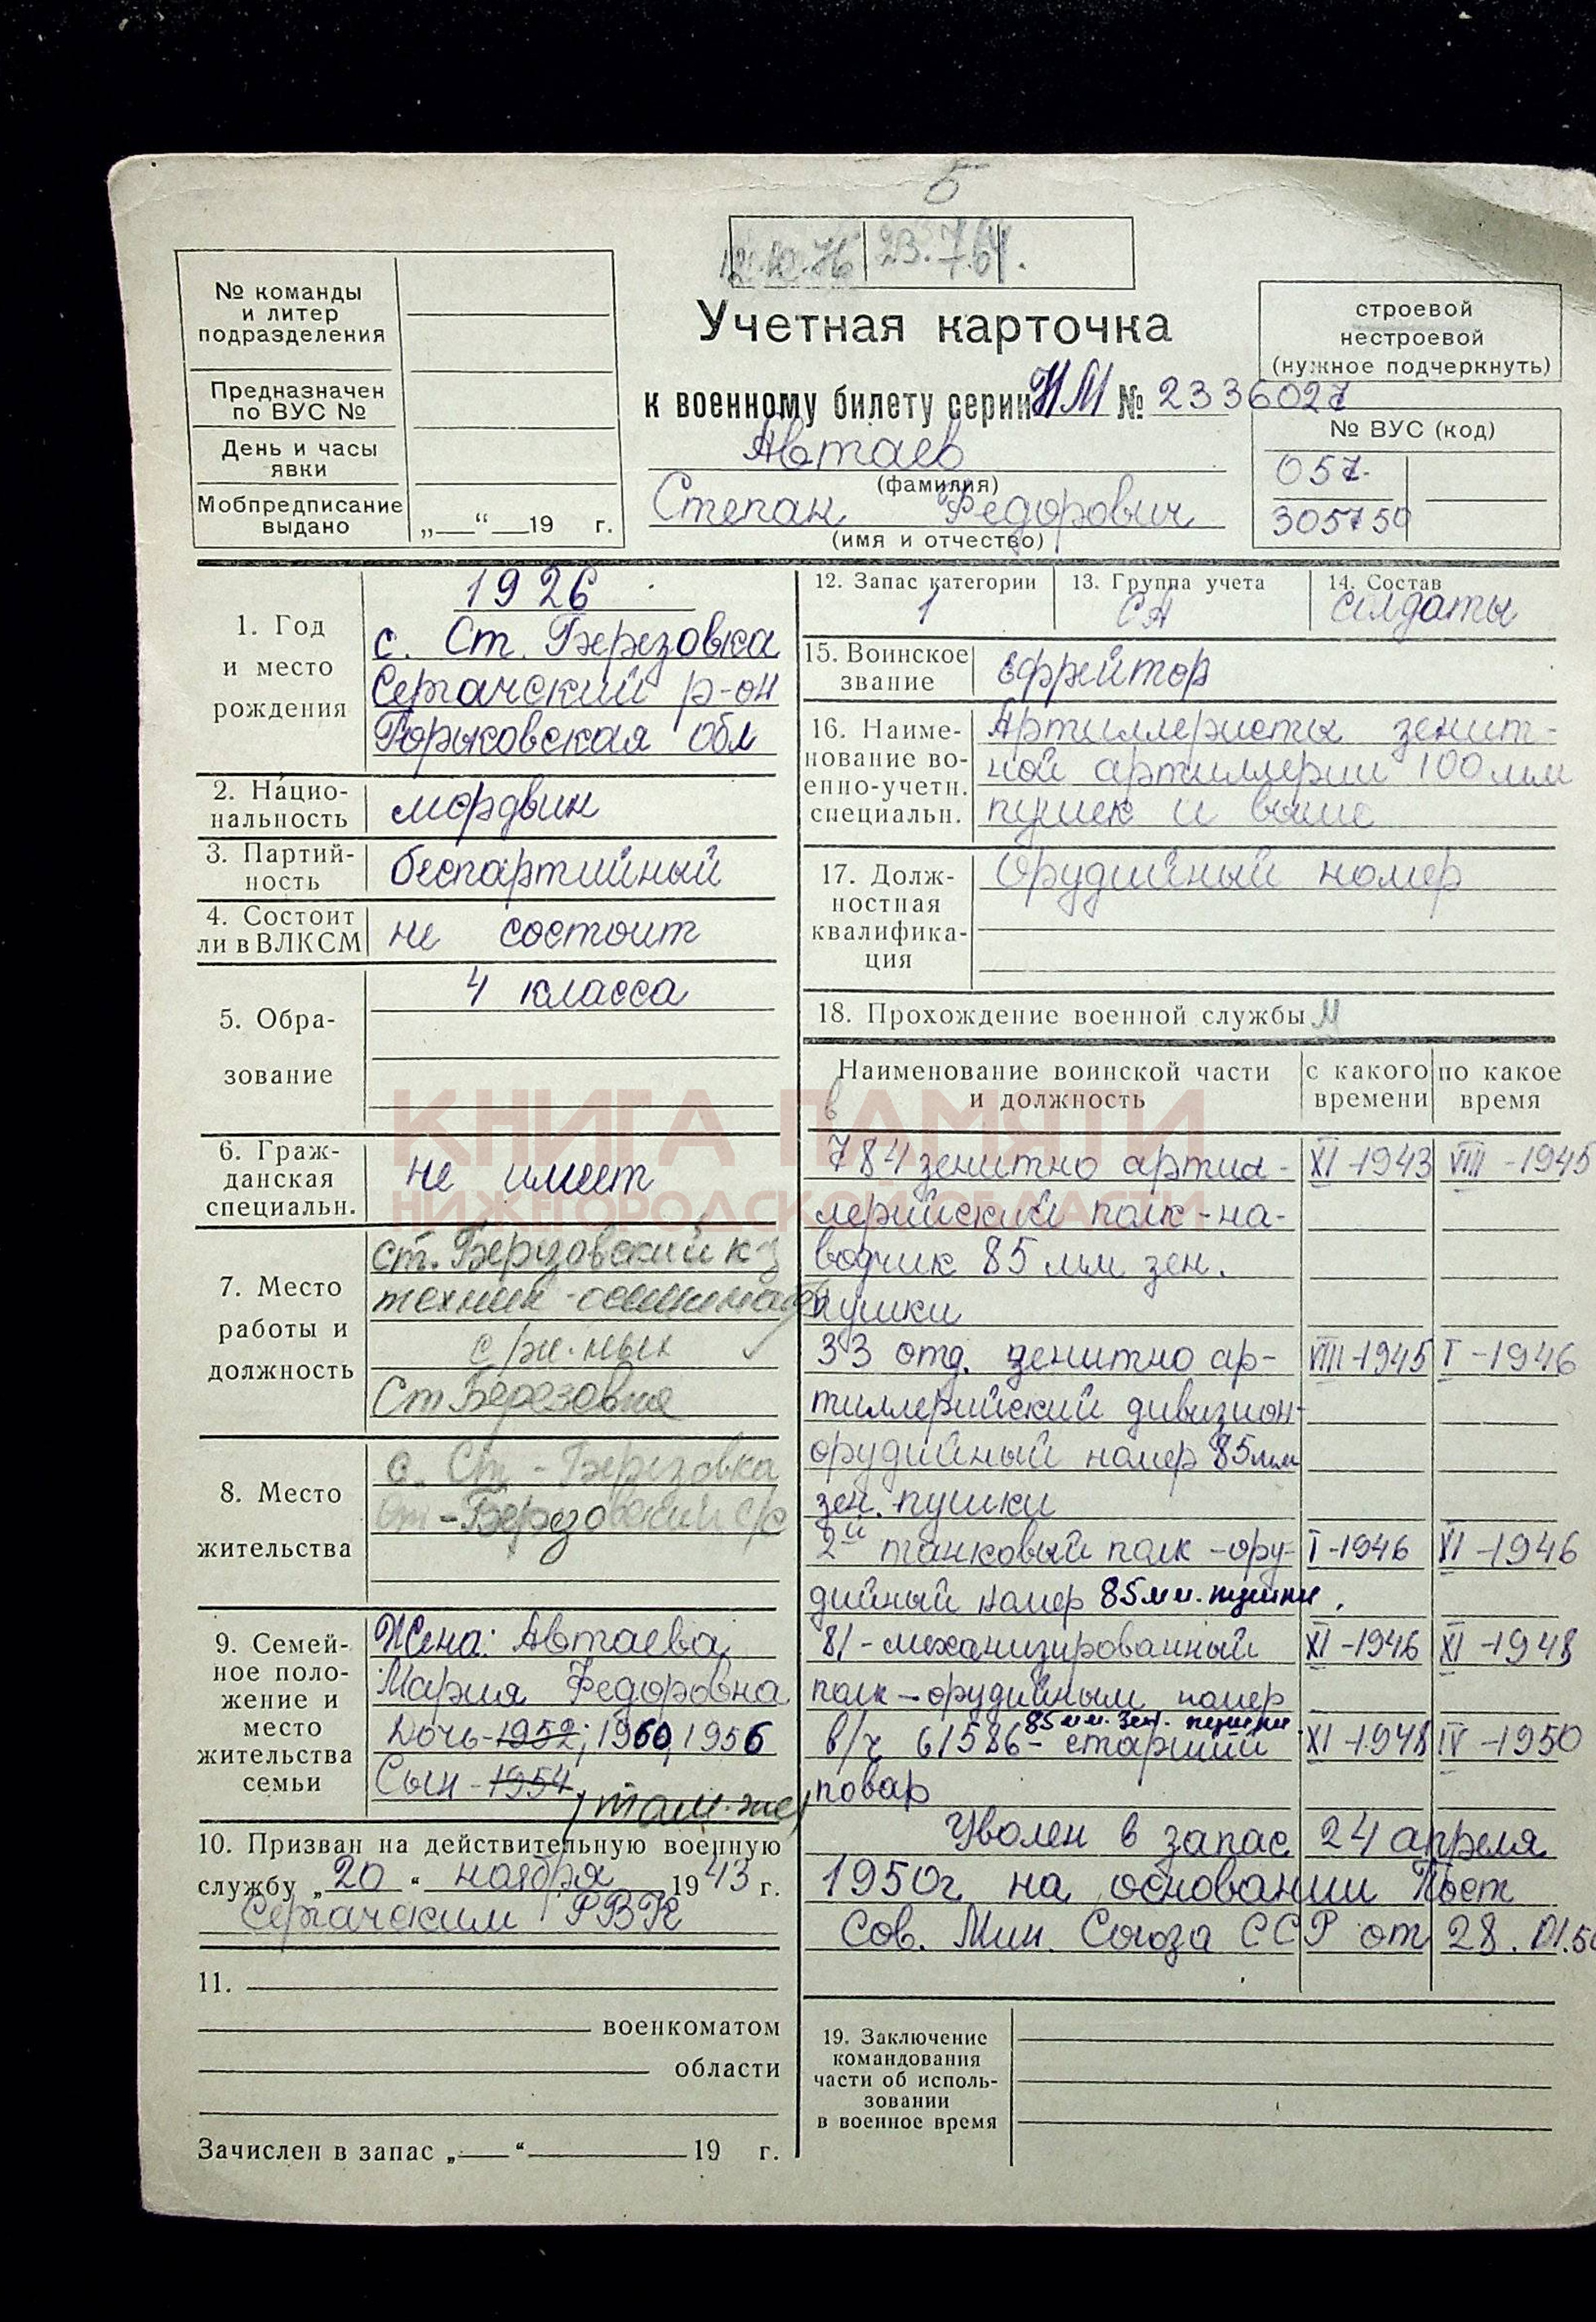 5
23.7.64.
№ команды
и литер
подразделения
Предназначен
по ВУС №
День и часы
явки
Мобпредписание
выдано „__“ __19 г.
Учетная карточка
к военному билету серии НМ № 2336027
Автаев
(фамилия)
Степан Федорович
(имя и отчество)
строевой
нестроевой
(нужное подчеркнуть)
№ ВУС (код)
057
305750
1. Год
и место
рождения
1926
с. Ст. Березовка
Сергачский р-он
Горьковская обл
2. Нацио-
нальность
мордвин
3. Партий-
ность
беспартийный
4. Состоит
ли в ВЛКСМ
не состоит
5. Обра-
зование
4 класса
6. Граж-
данская
специальн.
не имеет
7. Место
работы и
должность
ст. Березовский к-з
техник-осеменатор
Ст Березовка
8. Место
жительства
с. Ст-Березовка
Ст-Березовский с/с
9. Семей-
ное поло-
жение и
место
жительства
семьи
Жена: Автаева
Мария Федоровна
Дочь-1952; 1960, 1956
Сын-1954, там-же
10. Призван на действительную военную
службу „20“ ноября 1943 г.
Сергачским РВК
11.
военкоматом
области
Зачислен в запас „__“ 19 г.
12. Запас категории
1
13. Группа учета
СА
14. Состав
солдаты
15. Воинское
звание
ефрейтор
16. Наиме-
нование во-
енно-учетн.
специальн.
Артиллеристы зенит-
ной артиллерии 100 мм
пушек и выше
17. Долж-
ностная
квалифика-
ция
Орудийный номер
18. Прохождение военной службы
Наименование воинской части
и должность
с какого
времени
по какое
время
784 зенитно артил- XI-1943 VIII-1945
лерийский полк-на-
водчик 85 мм зен.
пушки
33 отд. зенитно ар- VIII-1945 I-1946
тиллерийский дивизион-
орудийный номер 85мм
зен. пушки
2й танковый полк-ору- I-1946 XI-1946
дийный номер 85мм. пушки.
81-механизированный XI-1946 XI-1948
полк-орудийным номер
85мм. зен. пушки
в/ч 61586-старший XI-1948 IV-1950
повар
Уволен в запас 24 апреля
1950г на основании Пост
Сов. Мин. Союза ССР от 28.01.50
19. Заключение
командования
части об исполь-
зовании
в военное время
КНИГА ПАМЯТИ
НИЖЕГОРОДСКОЙ ОБЛАСТИ